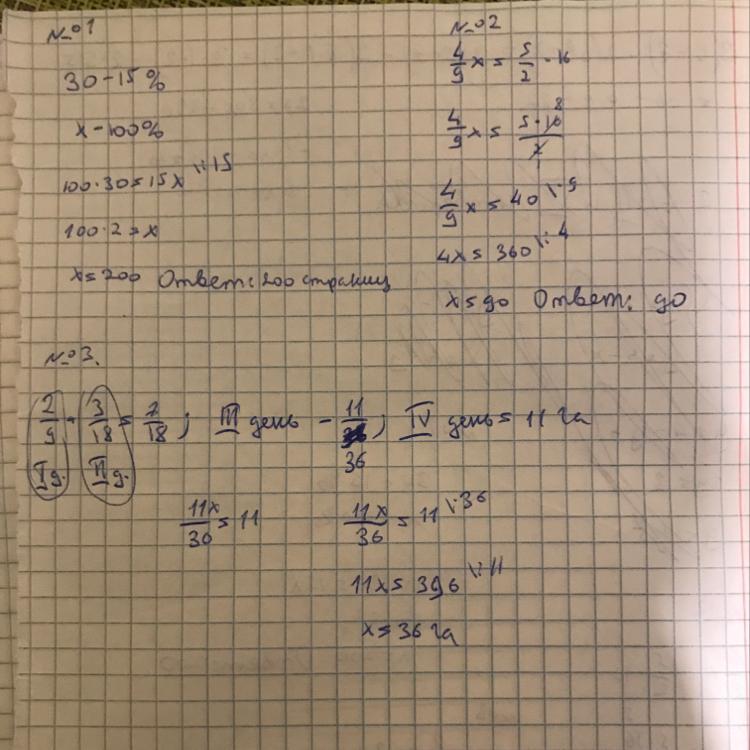 №1
30 - 15%
x - 100%
100·30 = 15x \:15
100·2 = x
x = 200 Ответ: 200 страниц
№2
4/9 x = 5/2 · 16
4/9 x = 5·16/2 8 1
4/9 x = 40 \·9
4x = 360 \:4
x = 90 Ответ: 90
№3.
2/9 + 3/18 = 7/18; III день - 11/36; IV день = 11 га
I д. II д.
11x/36 = 11 11x/36 = 11 \·36
11x = 396 \:11
x = 36 га